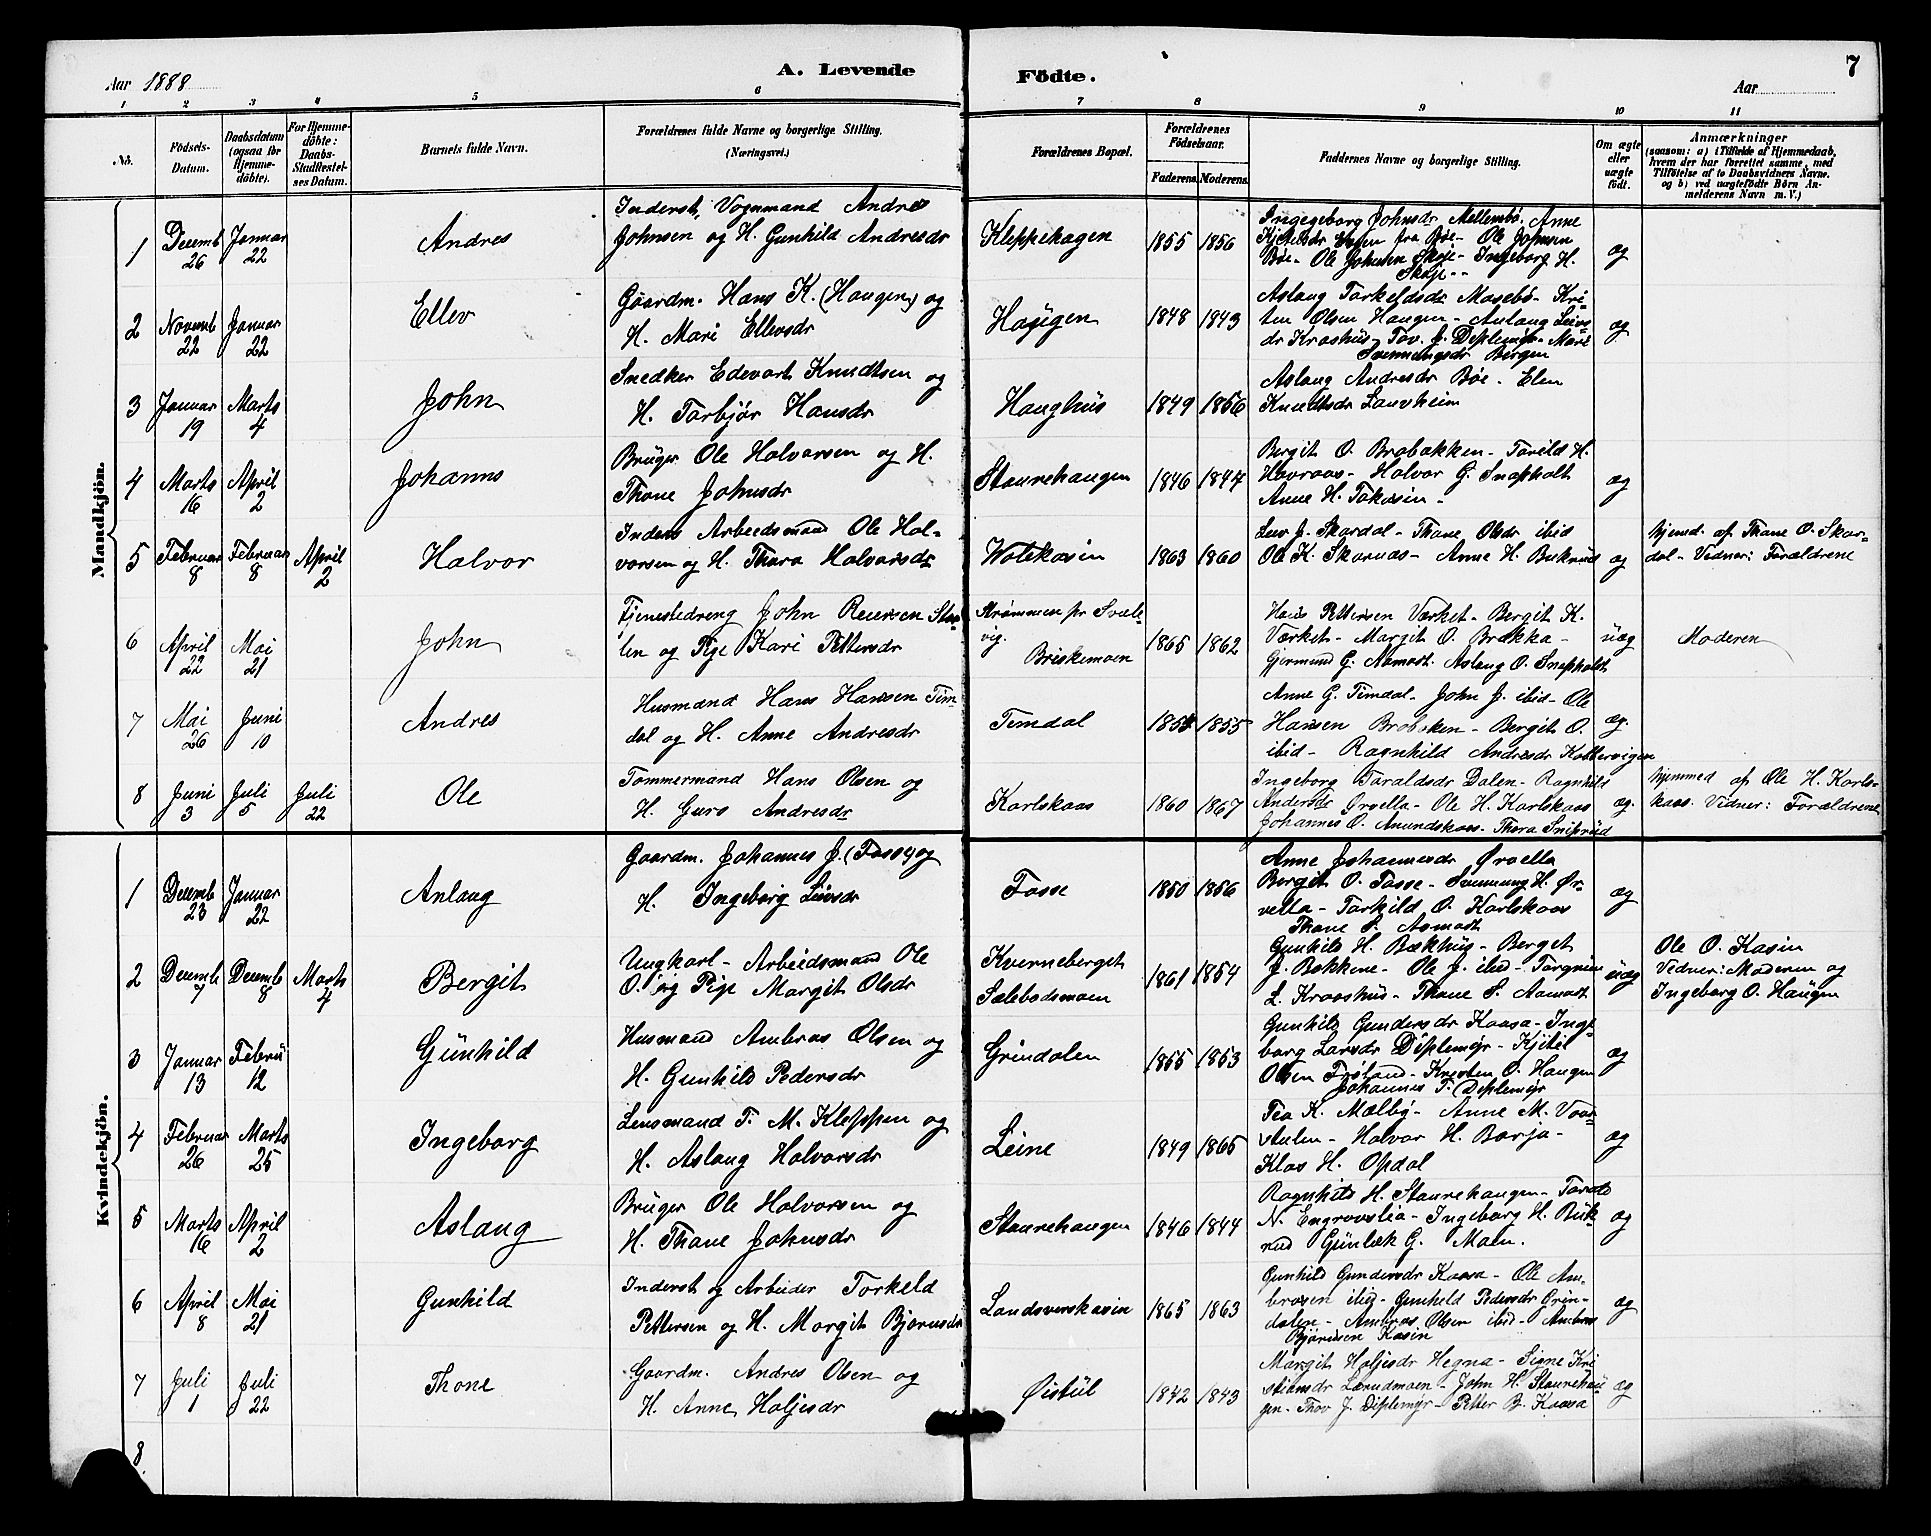 Aar 1888
A. Levende Födte.
7
Aar
1 2 3 4 5 6 7 8 9 10 11
No.
Födsels-Datum.
Daabsdatum (ogsaa for Hjemme-döbte).
For Hjemme-döbte: Daabs-Stadfæstel-ses Datum.
Barnets fulde Navn.
Forældrenes fulde Navne og borgerlige Stilling. (Næringsvei.)
Forældrenes Bopæl.
Forældrenes Födselsaar.
Faderens. Moderens.
Faddernes Navne og borgerlige Stilling.
Om ægte eller uægte födt.
Anmærkninger
(saasom: a) i Tilfælde af Hjemmedaab, hvem der har forrettet samme, med Tilföielse af to Daabsvidners Navne. og b) ved uægtefödte Börn An-melderens Navn m. V.)
Mandkjön.
1 Decemb 26 Januar 22 Andres
Inderst, Vognmand Andres
Johnsen og H. Gunhild Andresdr
Kleppehagen 1855 1856
Ingegeborg Johnsdr Mellembö. Anne
Kjetilsdr Evjen fra Bøe- Ole Johnsen
Bøe- Ole Johnsen Skoje- Ingeborg H.
Skoje--
æg
2 Novemb 22 Januar 22 Ellev
Gaardm. Hans K. (Haugen) og
H. Mari Ellevsdr
Høgigen 1848 1843
Aslaug Torkeldsdr Mosebö- Kri-
ten Olsen Haugen- Anlaug Leivs-
dr Kroshus- Tov. J. Deplemyr- Mari
Svennungsdr Bergen
æg
3 Januar 19 Marts 4 John
Snedker Edevart Knudtsen og
H. Torbjør Hansdr
Haughus 1849 1856
Aslaug Andresdr Bøe- Elen
Knudtsdr Lauvheim
4 Marts 16 April 2 Johanns
Bruger Ole Halvorsen og H.
Thone Johnsdr
Staurehaugen 1846 1844
Bergit O. Brobakken- Torild H.
Hovraas- Halvor G. Snapholt
Anne H. Tokasin-
æg
5 Februar 8 Februar 8 April 2 Halvor
Inders Arbeidsmand Ole Hal-
vorsen og H. Thora Halvorsdr
Wolekasin 1863 1860
Leiv J. Skardal- Thone Olsdr ibid
Ole K. Skarnas- Anne H. Buknus
æg
hjemd. af Thone O. Skar-
dal- Vidner: Forældrene
6 April 22 Mai 21 John
Tjenestedreng John Reiersen Sta-
len og Pige Kari Pettersdr
Strømmen pr Svele-
vig.
Briskemoen 1865 1862
Hans Pettersen Værket- Bergit K.
Værket- Margit O. Brakka-
Gjermund G. Aamodt. Aslaug O. Snapholdt
uæg
Moderen
7 Mai 26 Juni 10 Andres
Husmand Hans Hansen Tim-
dal og H. Anne Andresdr
Timdal 1854 1855
Anne G. Timdal- John J. ibid- Ole
Hansen Brobøken- Bergit O.
ibid- Ragnhild Andresdr Koltervigen
æg.
8 Juni 3 Juli 5 Juli 22 Ole
Tømmermand Hans Olsen og
H. Guro Andresdr
Karlskaas 1860 1867
Ingeborg Toraldsdr Dalen- Ragnhild
Andersdr Ørvella- Ole H. Karlskaas
Johannes O. Amundskaas- Thora Sniprud
æg.
hjemmed af Ole H. Karls-
kaas. Vidner: Forældrene
Kvindekjön.
1 Decemb 23 Januar 22 Anlaug
Gaardm. Johannes J. (Fosse) og
H. Ingeborg Leivsdr
Fosse 1850 1856
Anne Johannesdr Ørvella
Bergit O. Fosse- Svennung H. Ør-
vella- Torkild O. Karlskaas
Thone S. Aamodt
æg
2 Decemb 7 Decemb 8 Marts 4 Bergit
Ungkarl- Arbeidsmand Ole
O. og Pige Margit Olsdr
Kverneberget
Sælebodsmoen 1861 1854
Gunhild H. Bækhus- Berget
J. Bakkene- Ole J. ibid- Torgrim
L. Kroshus- Thone S. Aamodt
uæg
Ole O. Kasin
Vedner: Moderen og
Ingeborg O. Haugen
3 Januar 13 Februar 12 Gunhild
Husmand Ambros Olsen og
H. Gunhild Pedersdr
Grindalen 1855 1853
Gunhild Gundersdr Kaasa- Inge-
borg Larsdr Diplemyr- Kjitil
Olsen Frøland- Knesten O. Haugen
Johannes T. Deplemyr
æg
4 Februar 26 Marts 25 Ingeborg
Lensmand T. M. Kleppen og
H. Aslaug Halvorsdr
Leine 1849 1865
Tea K. Mælby- Anne M. Vaa-
stulen- Halvor H. Borja-
Klas H. Opdal
æg
5 Marts 16 April 2 Aslaug
Bruger Ole Halvorsen og
H. Thone Johnsdr
Staurehaugen 1846 1844
Ragnhild H. Staurehaugen- Torald
N. Engrovslia- Ingeborg H. Buk-
nud Gunlæk G. Moen.
æg
6 April 8 Mai 21 Gunhild
Inderst og Arbeider Torkeld
Pettersen og H. Margit Bjørnsdr
Landsverskasin 1865 1863
Gunhild Gundersdr Kaasa- Ole Am-
brosen ibid- Gunhild Pedersdr Grin-
dalen- Ambros Olsen ibid- Ambros
Bjørnsen Kasin
æg
7 Juli 1 Juli 22 Thone
Gaardm. Andres Olsen og
H. Anne Holjesdr
Øistul 1842 1843
Margit Holjesdr Hegna- Signe Kri
stiansdr Lærudmoen- John H. Staurehau
gen- Thov J. Diplemyr- Petter B. Kaasa
æg
8